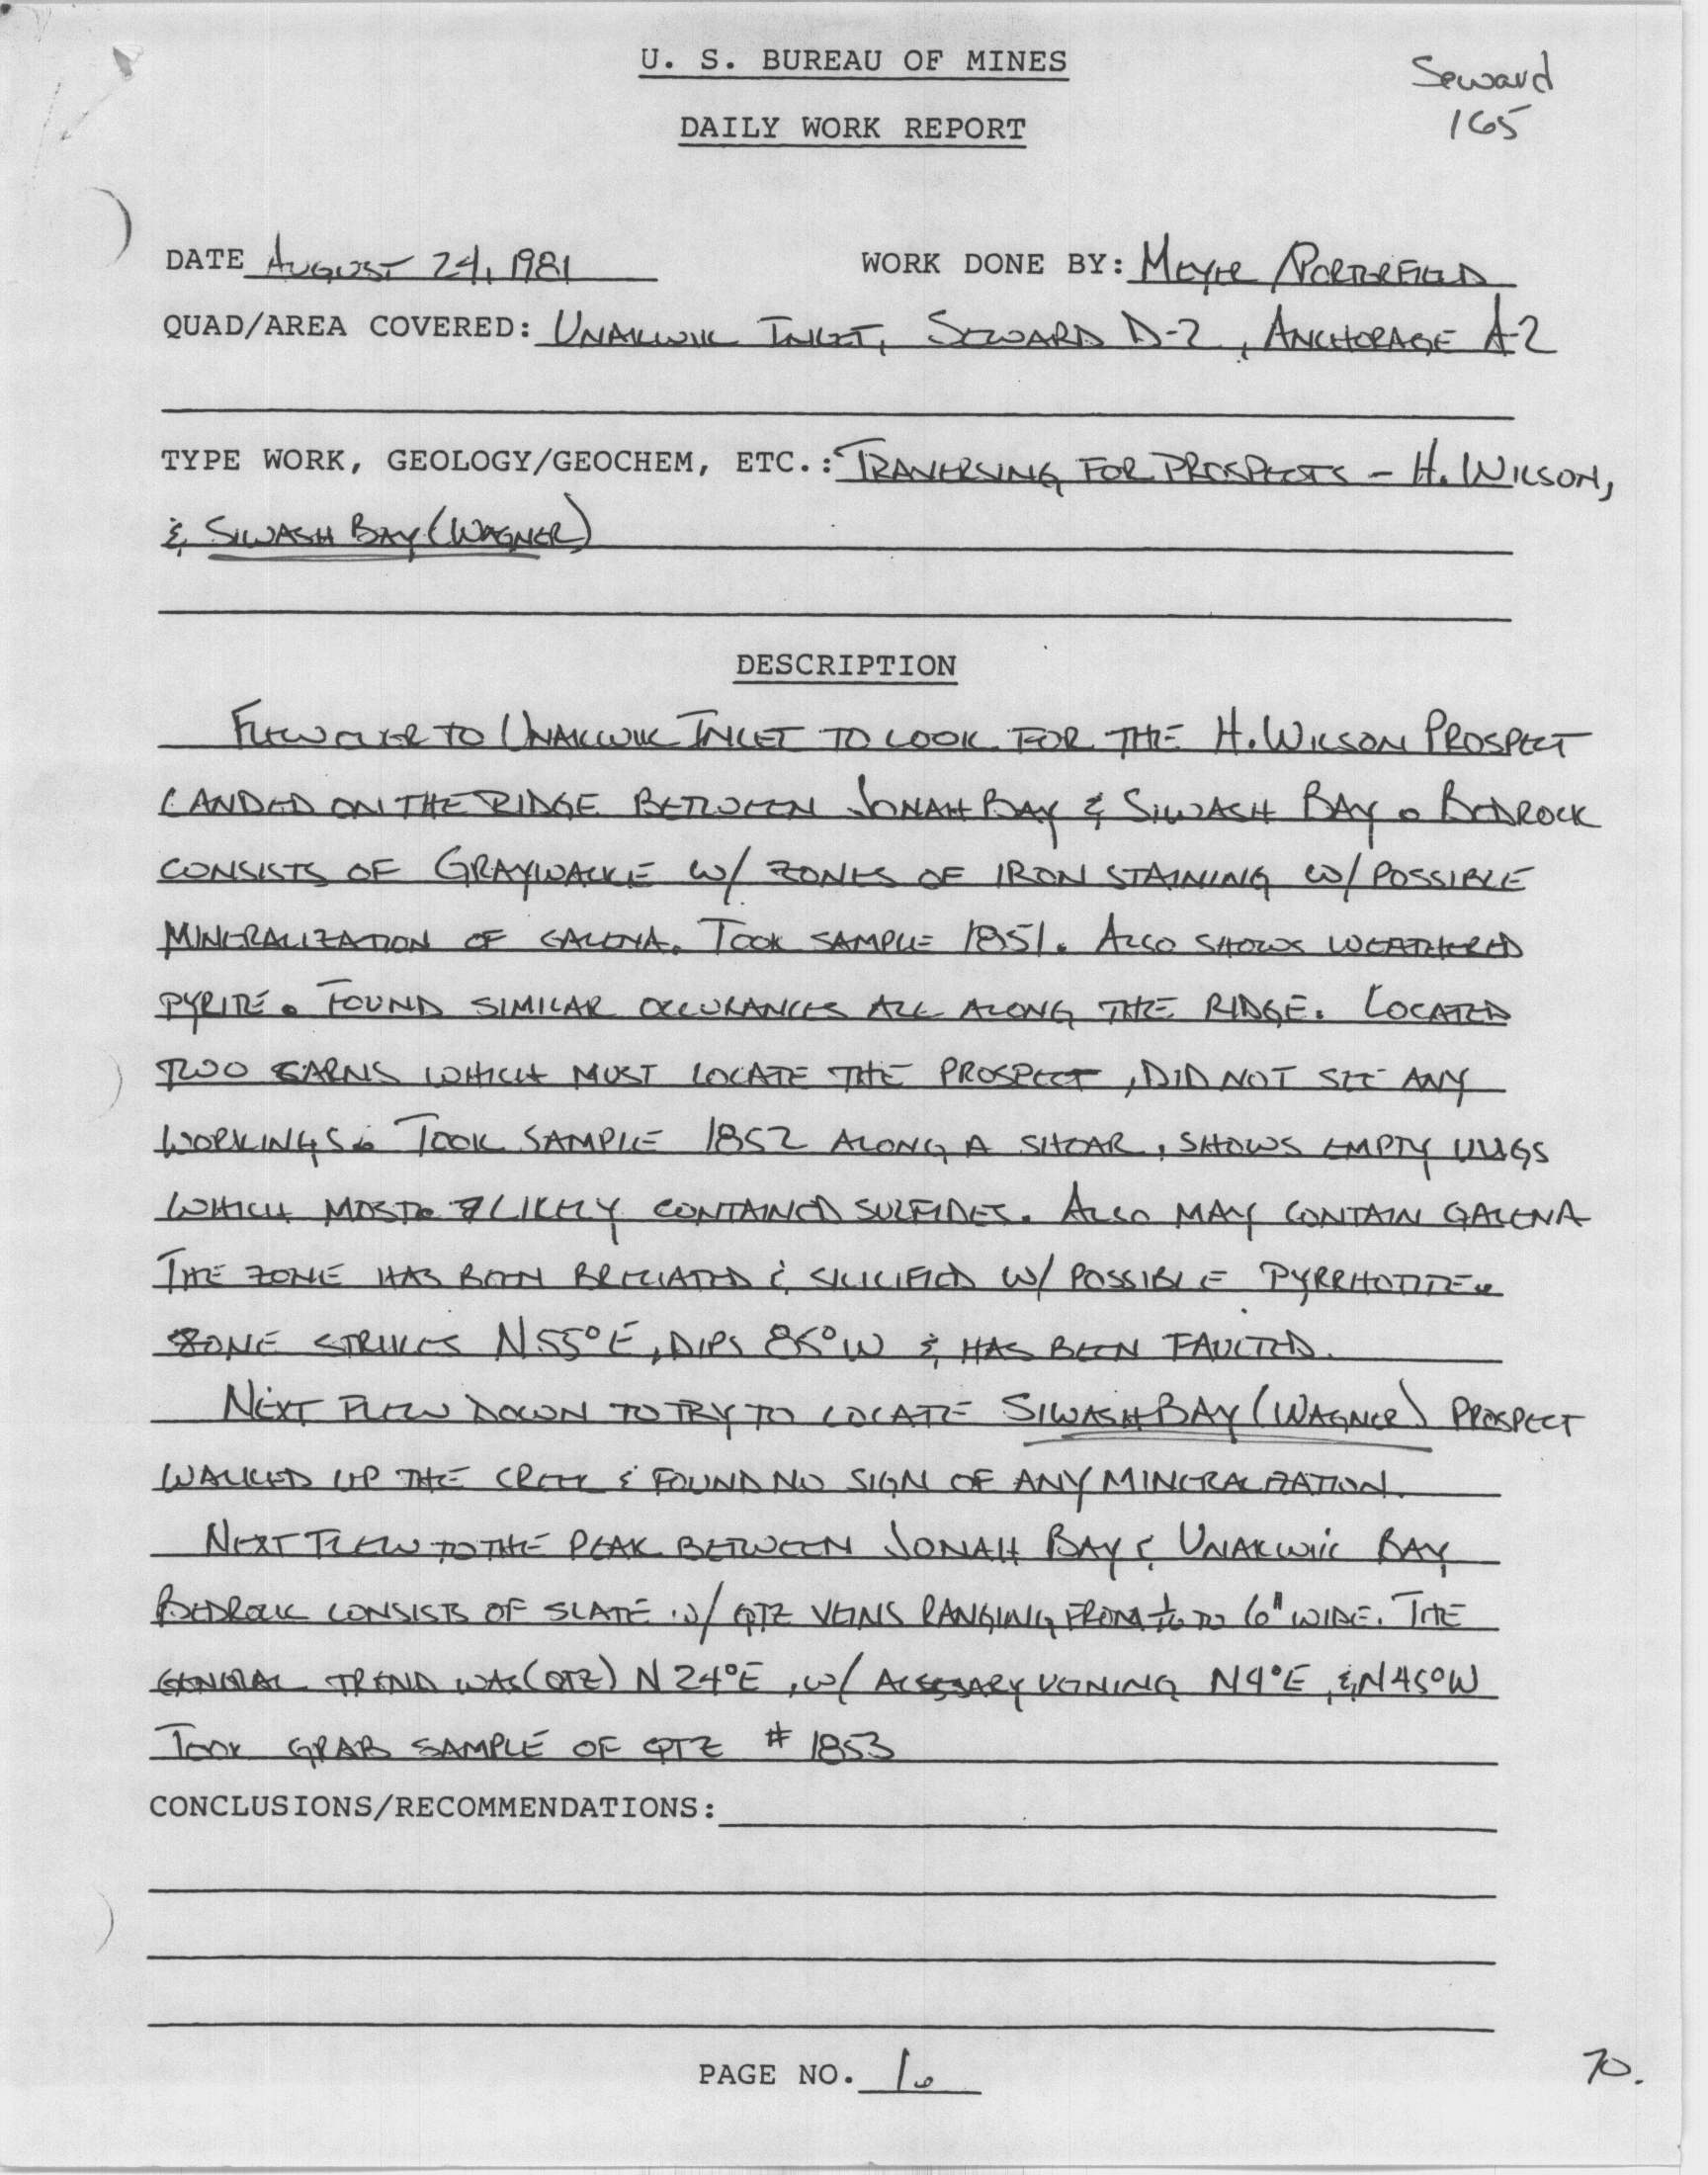 U. S. BUREAU OF MINES
Seward
165
DAILY WORK REPORT
DATE AUGUST 24, 1981 WORK DONE BY: MEYER / PORTERFIELD
QUAD/AREA COVERED: UNAKWIK INLET, SEWARD D-2, ANCHORAGE A-2
TYPE WORK, GEOLOGY/GEOCHEM, ETC.: TRAVERSING FOR PROSPECTS - H. WILSON,
& SIWASH BAY (WAGNER)
DESCRIPTION
FLEW OVER TO UNAKWIK INLET TO LOOK FOR THE H. WILSON PROSPECT
LANDED ON THE RIDGE BETWEEN JONAH BAY & SIWASH BAY. BEDROCK
CONSISTS OF GRAYWACKE W/ ZONES OF IRON STAINING W/ POSSIBLE
MINERALIZATION OF GALENA. TOOK SAMPLE 1851. ALSO SHOWS WEATHERED
PYRITE. FOUND SIMILAR OCCURANCES ALL ALONG THE RIDGE. LOCATED
TWO CARNS WHICH MUST LOCATE THE PROSPECT, DID NOT SEE ANY
WORKINGS. TOOK SAMPLE 1852 ALONG A SHEAR, SHOWS EMPTY VUGS
WHICH MOST LIKELY CONTAINED SULFIDES. ALSO MAY CONTAIN GALENA
THE ZONE HAS BEEN BRECIATED & SILICIFIED W/ POSSIBLE PYRRHOTITE.
ZONE STRIKES N55°E, DIPS 85°W & HAS BEEN FAULTED.
NEXT FLEW DOWN TO TRY TO LOCATE SIWASH BAY (WAGNER) PROSPECT
WALKED UP THE CREEK & FOUND NO SIGN OF ANY MINERALIZATION.
NEXT FLEW TO THE PEAK BETWEEN JONAH BAY & UNAKWIK BAY
BEDROCK CONSISTS OF SLATE W/ QTZ VEINS RANGING FROM TO 6" WIDE. THE
GENERAL TREND WAS (QTZ) N24°E, W/ ACSESSARY VEINING N9°E, & N45°W
TOOK GRAB SAMPLE OF QTZ # 1853
CONCLUSIONS/RECOMMENDATIONS:
PAGE NO. 1.
70.